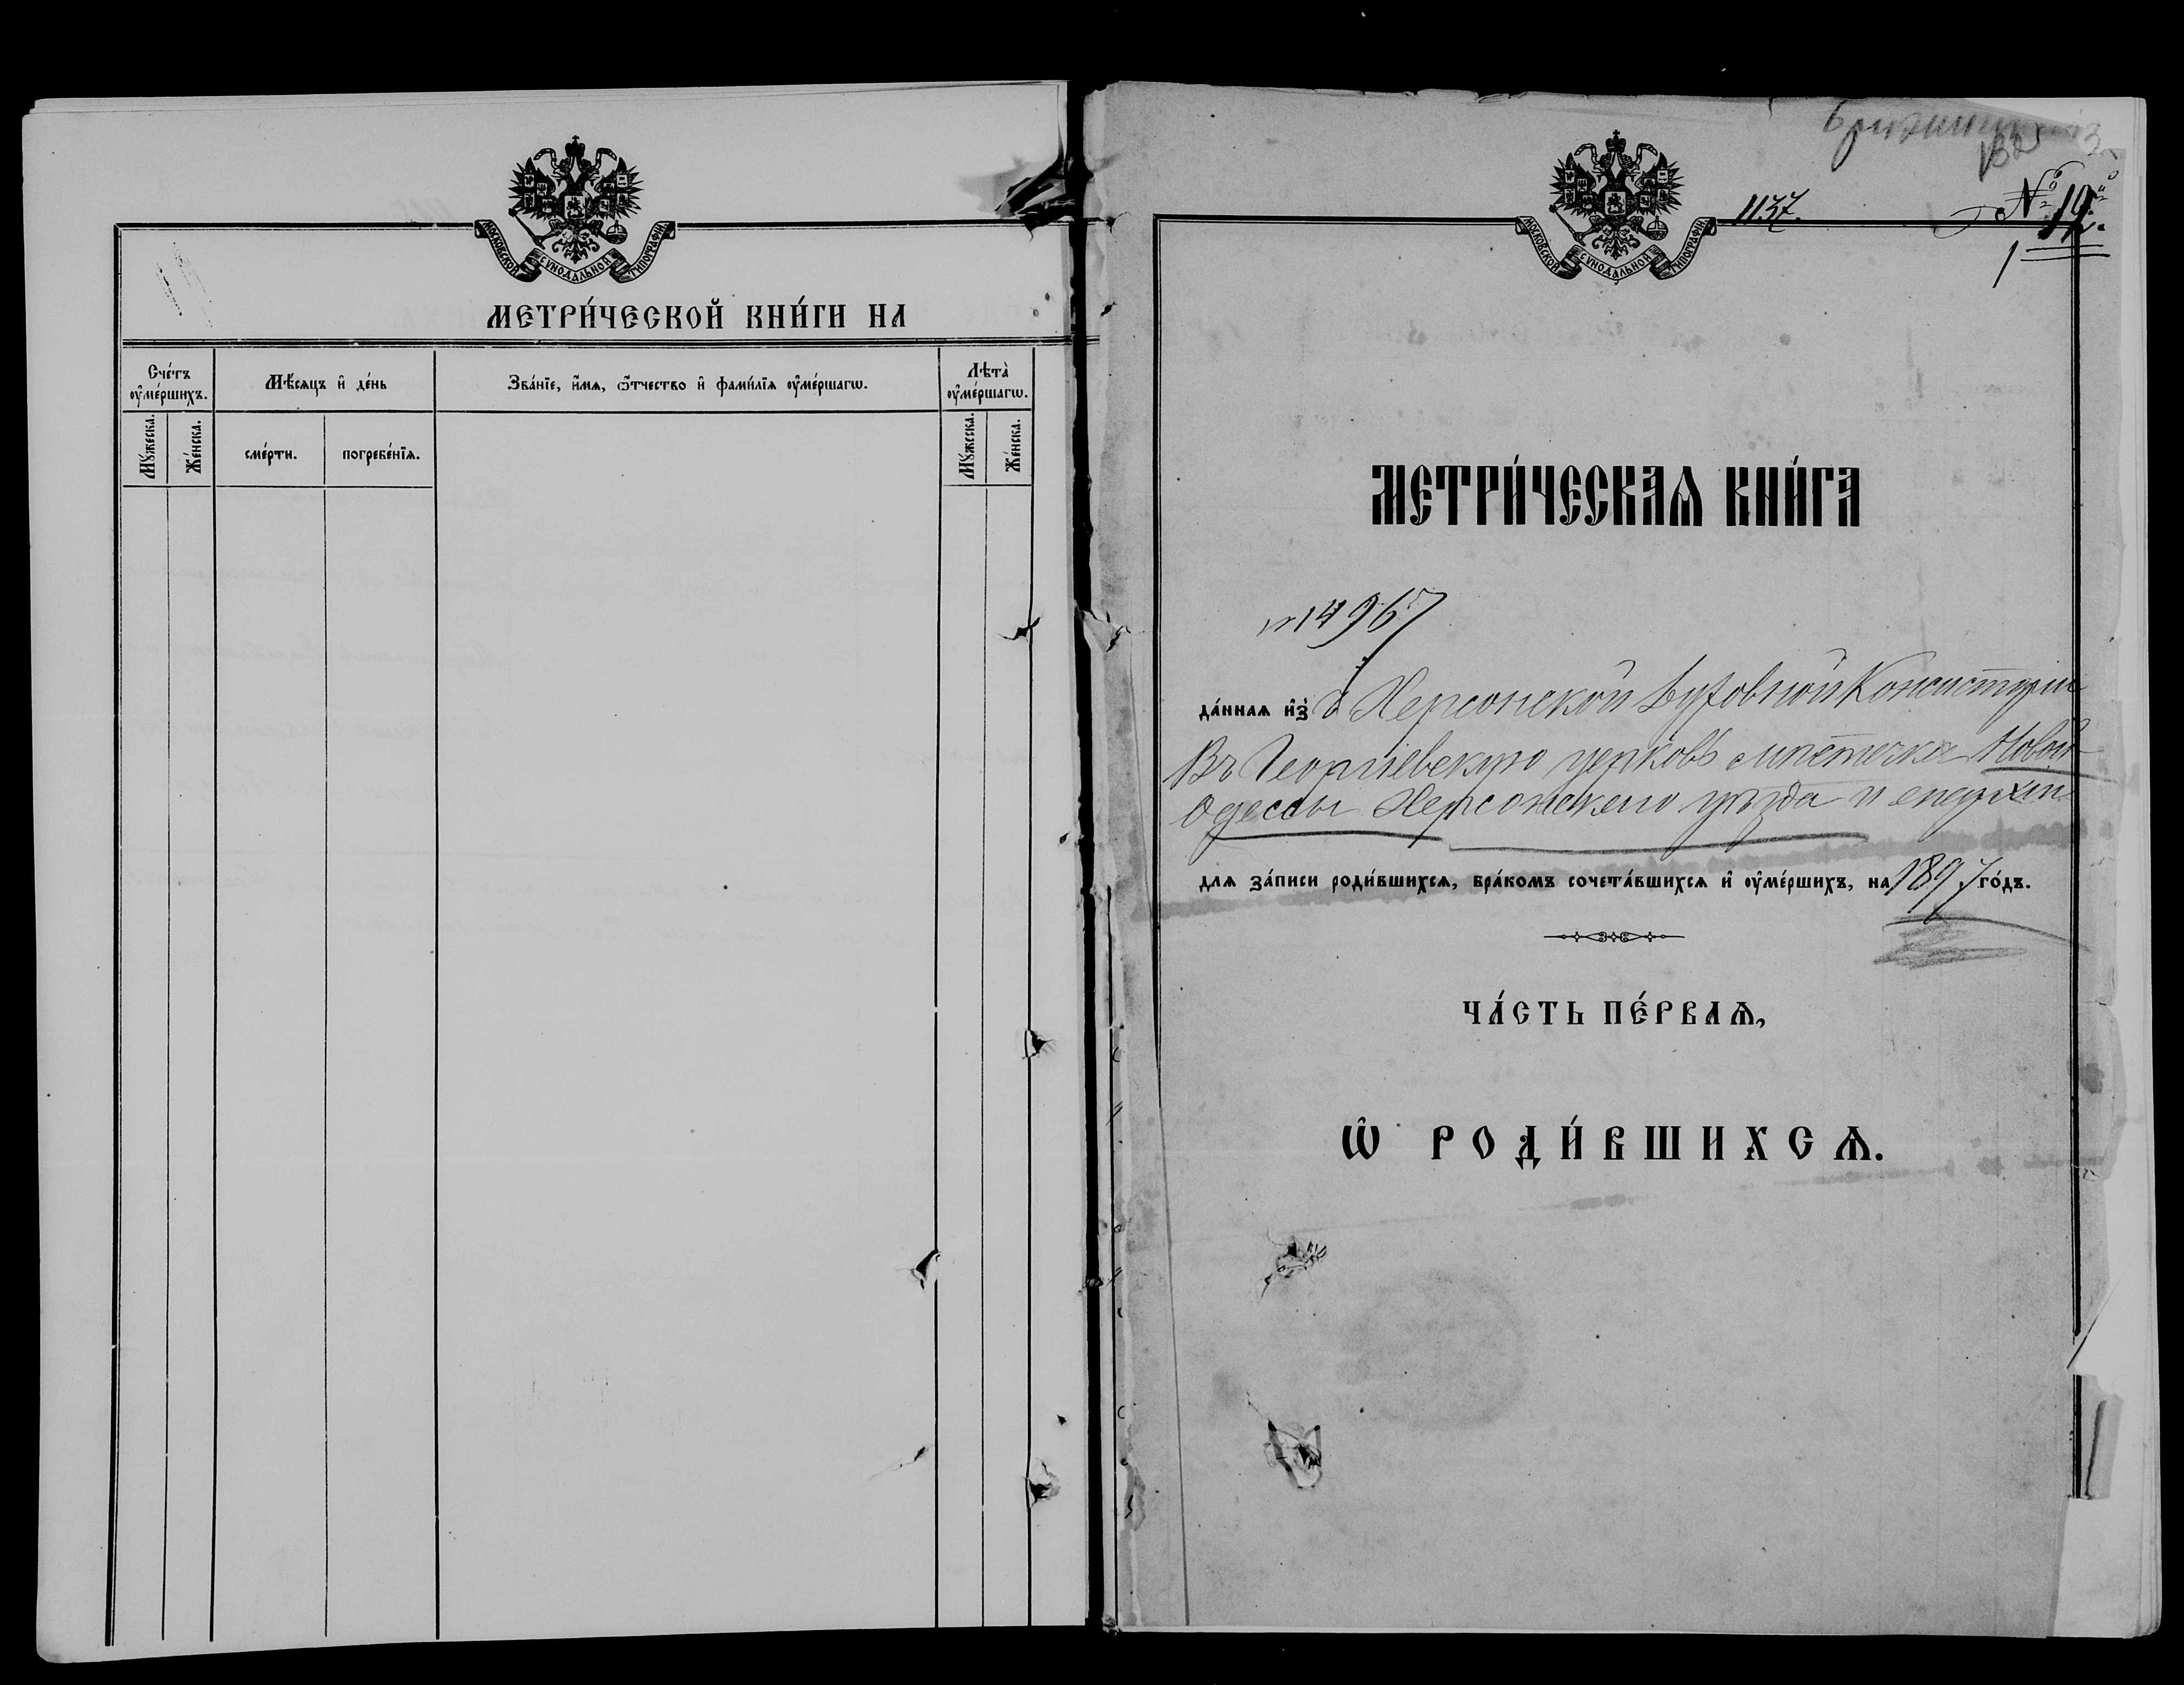 МОСКОВСКОЙ СѴНОДАЛЬНОЙ ТИПОГРАФІИ
МЕТРИ́ЧЕСКОЙ КНИ́ГИ НА
Сче́тъ ᲂу҆ме́ршихъ.
Мѣ́сяцъ и҆ де́нь
Зва́нїе, и҆́мѧ, ѻ҆́тчество и҆ фами́лїѧ ᲂу҆ме́ршагѡ.
Лѣта̀ ᲂу҆ме́ршагѡ.
Мꙋ́жеска.
Же́нска.
сме́рти.
погребе́нїѧ.
Мꙋ́жеска.
Же́нска.
1137.
№ 19.
МОСКОВСКОЙ СѴНОДАЛЬНОЙ ТИПОГРАФІИ
МЕТРИ́ЧЕСКАѦ КНИ́ГА
№14967
да́ннаѧ и҆з̾ Херсонской Духовной Консисторіи
Въ Георгіевскую церковь мѣстечка Новой
Одессы Херсонскаго уѣзда и епархіи
для за́писи роди́вшихсѧ, бра́комъ сочета́вшихсѧ и҆ ᲂу҆ме́ршихъ, на 1897 го́дъ.
ЧА́СТЬ ПЕ́РВАѦ,
Ѡ҆ РОДИ́ВШИХСѦ.